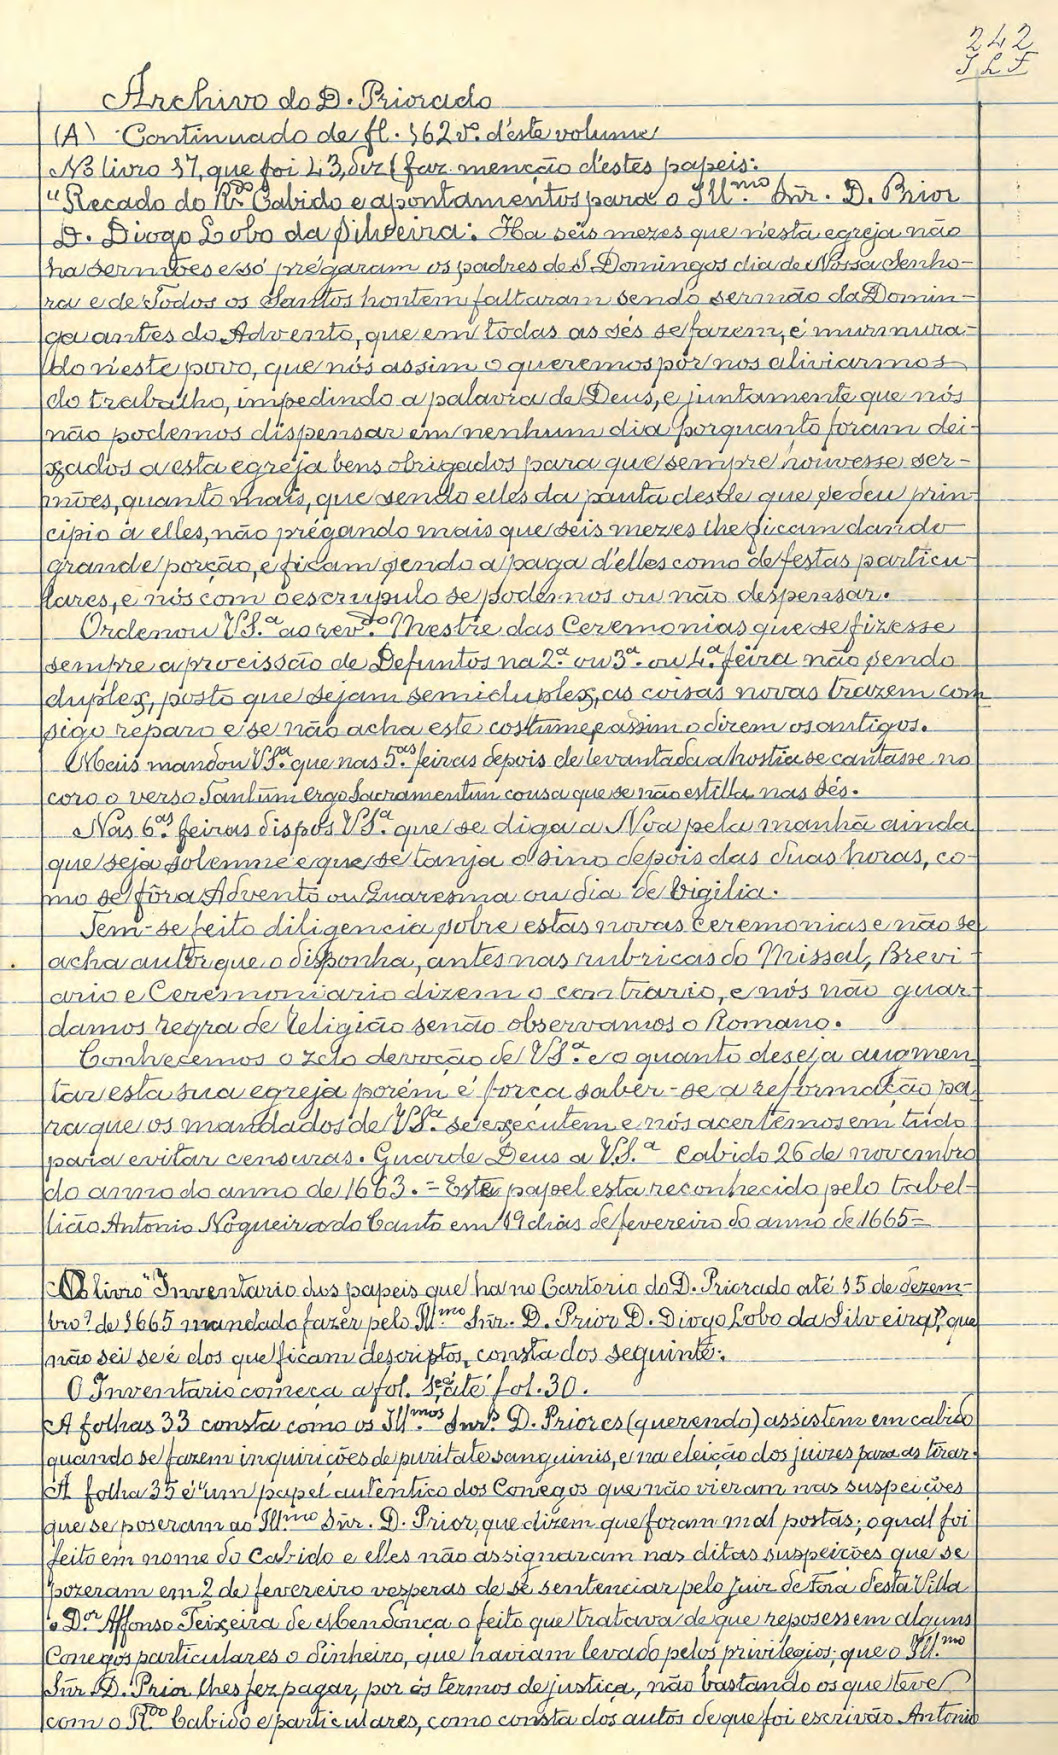 242
J L F
Archivo do D. Priorado
(A) Continuado de fl. 162 vº. d'este volume
No livro 17, que foi 43, diz (faz menção d'estes papeis:
"Recado do Rdo Cabido e apontamentos para o Illmo. Snr. D. Prior
D. Diogo Lobo da Silveira: Ha seis mezes que n'esta egreja não
ha sermões e só prégaram os padres de S. Domingos dia de Nossa Senho-
ra e de Todos os Santos hontem faltaram sendo sermão da Domin-
ga antes do Advento, que em todas as sés se fazem, é murmura-
do n'este povo, que nós assim o queremos pôr nos aliviarmos
do trabalho, impedindo a palavra de Deus, e juntamente que nós
não podemos dispensar em nenhum dia porquanto foram dei-
xados a esta egreja bens obrigados para que sempre houvesse ser-
mões, quanto mais, que sendo elles da pauta desde que se deu prin-
cipio a elles, não prégando mais que seis mezes lhe ficam dando
grande porção, e ficam sendo a paga d'elles como de festas particu-
lares, e nós com o escrupulo se podemos ou não despensar.
Ordenou V.S.ª ao revdo. Mestre das Ceremonias que se fizesse
sempre a procissão de Defuntos na 2ª. ou 3ª. ou 4ª. feira não sendo
duplex, posto que sejam semiduplex, as coisas novas trazem com
sigo reparo e se não acha este costume, e assim o dizem os antigos.
Mais mandou V.Sª. que nas 5.as feiras depois de levantada a hostia se cantasse no
coro o verso Tantum ergo Sacramentum cousa que se não estilla nas Sés.
Nas 6.as feiras dispos V.Sª. que se diga a Noa pela manhã ainda
que seja solemne e que se tanja o sino depois das duas horas, co-
mo se fôra Advento ou Quaresma ou dia de Vigilia.
Tem-se feito diligencia sobre estas novas Ceremonias e não se
acha autôr que o disponha, antes nas rubricas do Missal, Brevi-
ario e Ceremoniario dizem o contrario, e nós não guar-
damos regra de religião senão observamos o Romano.
Conhecemos o zelo devoção de V.Sª. e o quanto deseja augmen
tar esta sua egreja porém é força saber-se a reformação pa-
ra que os mandados de V.Sª. se executem e nós acertemos em tudo
para evitar censuras. Guarde Deus a V.S.ª Cabido 26 de novembro
do anno do anno de 1663. = Este papel esta reconhecido pelo tabel-
lião Antonio Nogueira do Canto em 19 dias de fevereiro do anno de 1665=
No livro "Inventario dos papeis que ha no Cartorio do D. Priorado até 15 de dezem-
bro de 1665 mandado fazer pelo Illmo. Snr. D. Prior D. Diogo Lobo da Silveira", que
não sei se é dos que ficam descriptos, consta dos seguinte:
O Inventario começa a fol. 1, e até fol. 30.
A folhas 33 consta como os Illmos Snrs. D. Priores (querendo) assistem em cabido
quando se fazem inquirições de puritate sanguinis, e na eleição dos juizes para as tirar.
A folha 35 é "um papel autentico dos Conegos que não vieram nas suspeições
que se poseram ao Illmo. Snr. D. Prior, que dizem que foram mal postas; o qual foi
feito em nome do Cabido e elles não assignaram nas ditas suspeições que se
pozeram em 2 de fevereiro vesperas de se sentenciar pelo Juiz de Fóra desta Villa
o D.or Affonso Teixeira de Mendonça o feito que tratava de que reposessem alguns
Conegos particulares o dinheiro, que haviam levado pelos privilegios; que o Illmo
Snr. D. Prior lhes fez pagar, por os termos de justiça, não bastando os que teve
com o Rdo Cabido e particulares, como consta dos autos de que foi escrivão Antonio